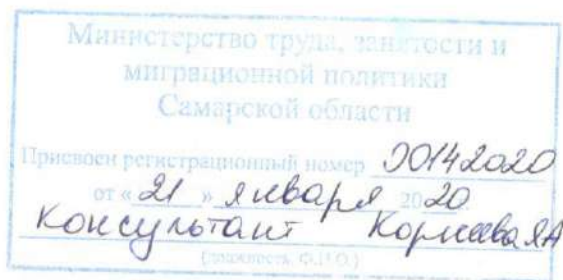 Министерство труда, занятости и
миграционной политики
Самарской области
Присвоен регистрационный номер 00142020
от « 21 » января 2020.
консультант Корнеева ЯА
(должность, Ф.И.О.)